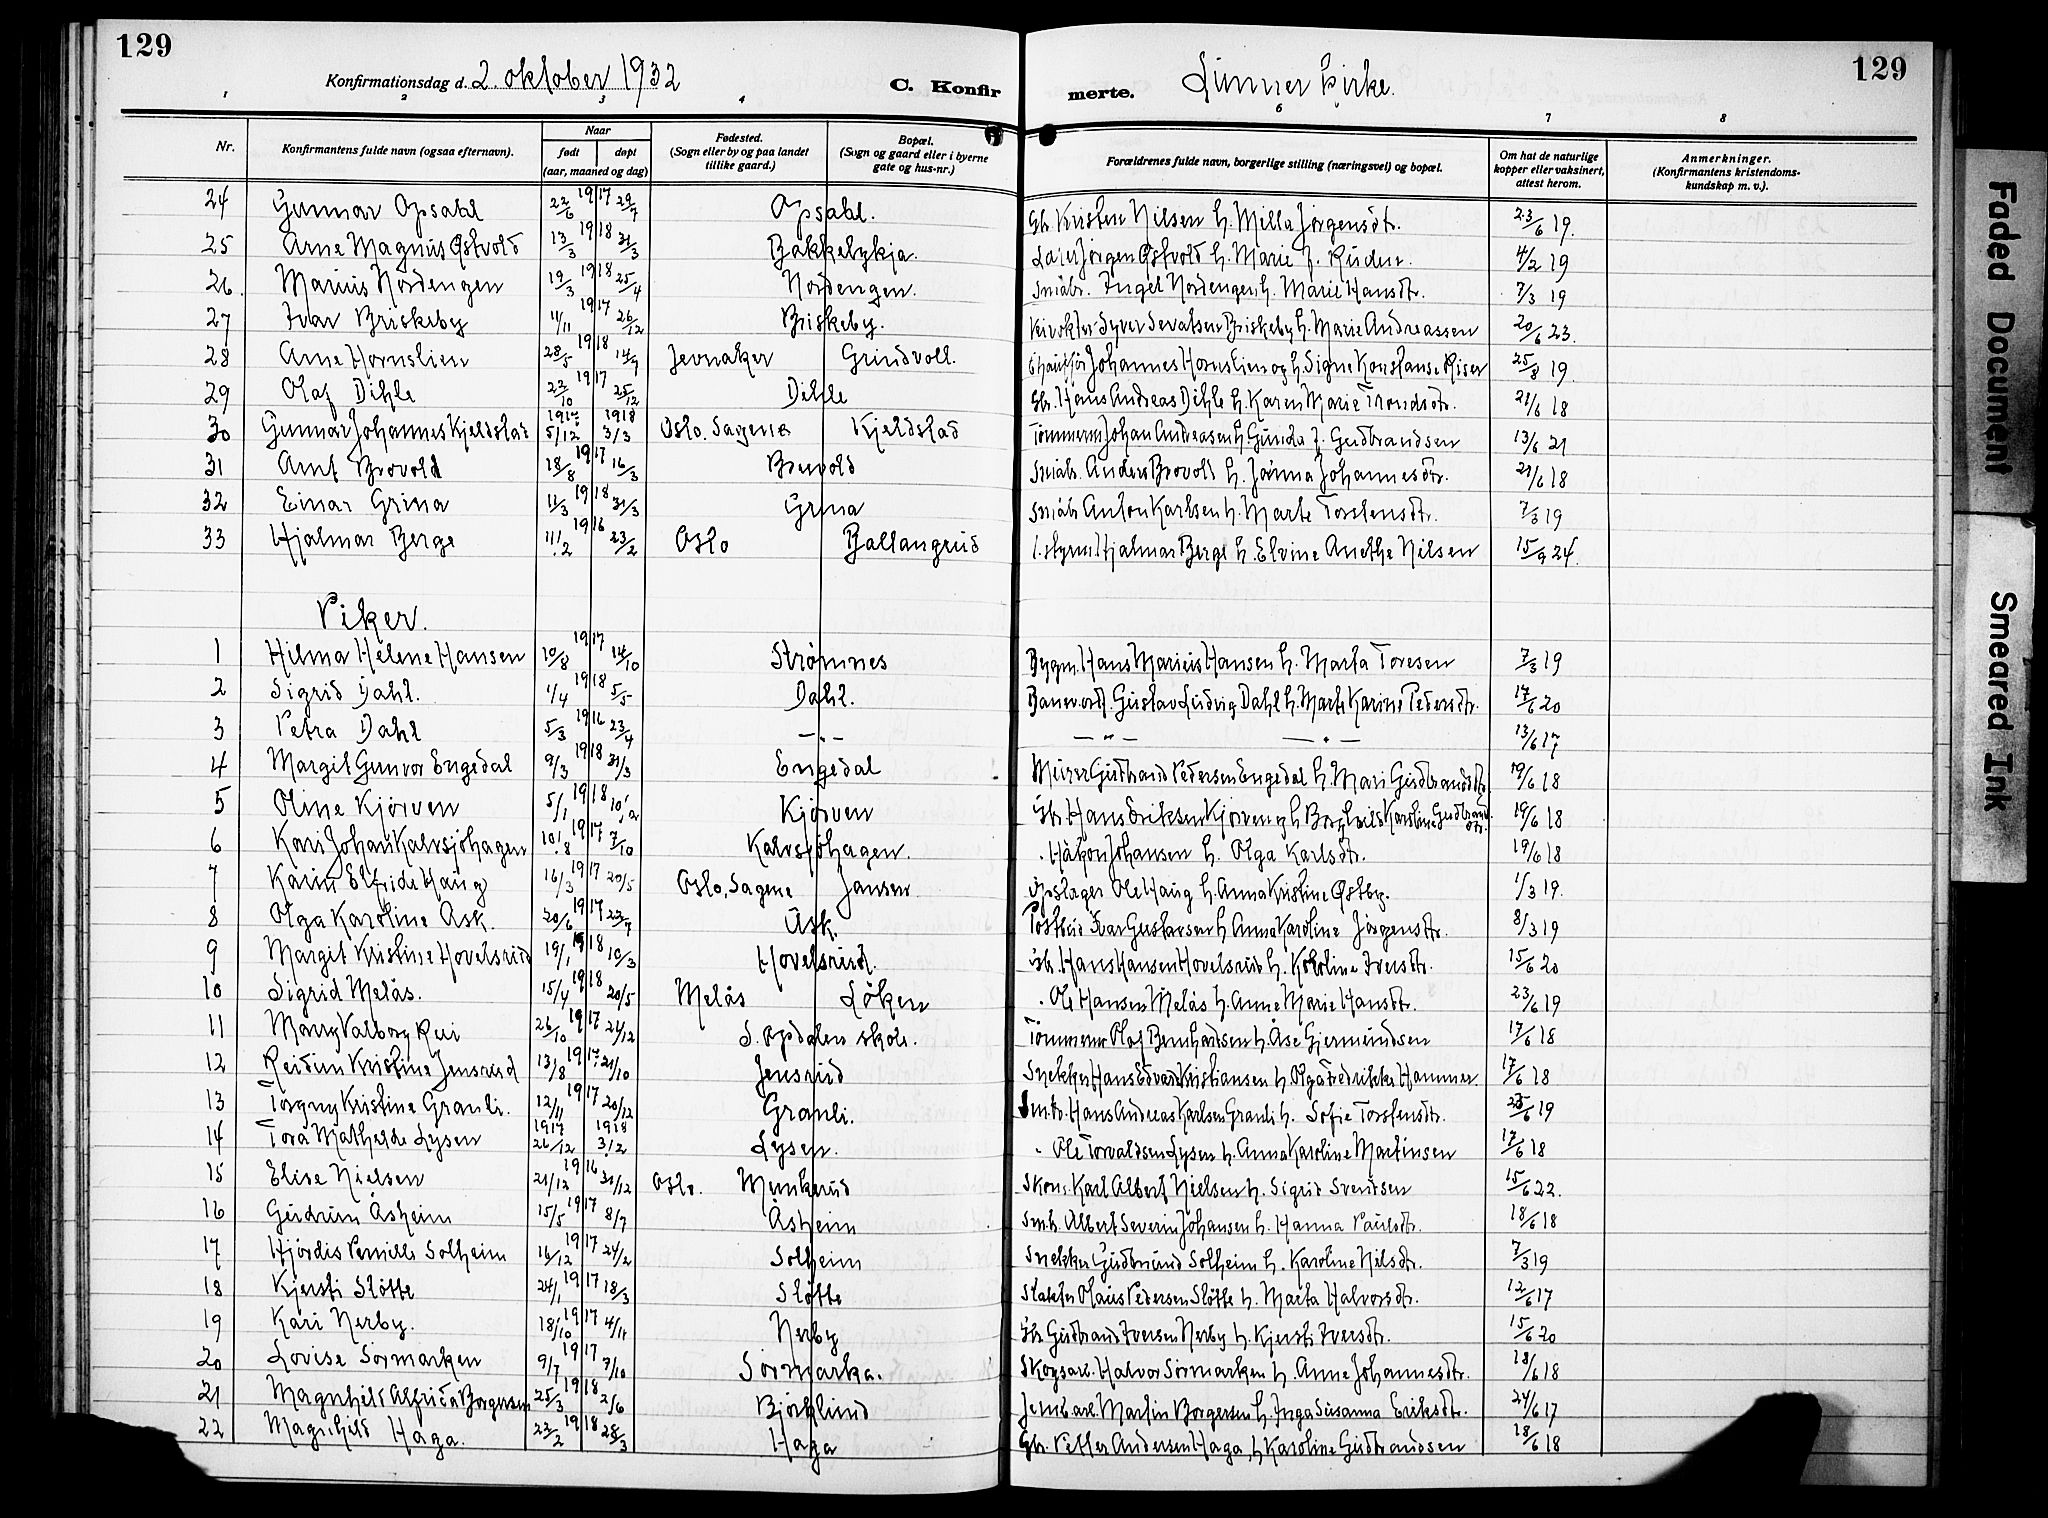 129
129
Konfirmationsdag d. 2. oktober 1932
C. Konfirmerte.
Lunner kirke.
1 2 3 4 6 7 8
Nr.
Konfirmantens fulde navn (ogsaa efternavn).
Naar
født
døpt
(aar, maaned og dag)
Fødested.
(Sogn eller by og paa landet
tillike gaard.)
Bopæl.
(Sogn og gaard eller i byerne
gate og hus-nr.)
Forældrenes fulde navn, borgerlige stilling (næringsvei) og bopæl.
Om hat de naturlige
kopper eller vaksinert,
attest herom.
Anmerkninger.
(Konfirmantens kristendoms-
kundskap m. v.).
24 Gunnar Opsahl 22/6 1917 29/7 Opsahl. Gbr. Kristen Nilsen h. Milla Jörgensdtr. 23/6 19.
25 Arne Magnus Østvold 13/3 1918 31/3 Bakkebykja Jörgen Østvold h. Marie f. Ruden. 4/2 19
26. Marius Nordengen 19/3 1918 25/4 Nordengen. Småbr. Ingel Nordengen h. Marie Hansdtr. 7/3 19
27 Ivar Briskeby 11/11 1917 26/12 Briskeby. Syver Sevatsen Briskeby h. Marie Andreassen 20/6 23.
28 Arne Hornslien 28/5 1918 14/7 Jevnaker Grindvoll. Chauffør Johannes Hornslien og h. Signe Konstanse Riser 25/8 19.
29 Olaf Dihle 22/10 1917 25/12 Dihle Gbr. Hans Andreas Dihle h. Karen Marie Trondsdtr. 21/6 18
30 Gunnar Johannes Kjeldstad 1917 5/12 1918 3/3 Oslo, Sagene Kjeldstad Tömmerm. Johan Andreasen h. Gunda f. Gudbrandsen 13/6 21
31 Arnt Brovold 18/8 1917 16/3 Bruvold Småbr. Anders Brovold h. Janna Johannesdtr. 21/6 18
32 Einar Grina 11/3 1918 31/3 Grina Småbr. Anton Karlsen h. Marte Torstensdtr. 7/3 19
33 Hjalmar Berge 11/12 1916 23/2 Oslo Ballangrud 1. styrm. Hjalmar Berge h. Elvine Anethe Nilsen 15/9 24.
Viker.
1 Hilma Helene Hansen 10/8 1917 14/10 Strømnes Bygm. Hans Marius Hansen h. Marta Toresen 7/3 19
2 Sigrid Dahl. 1/4 1918 5/5 Dahl. Banevokt. Gustav Ludvig Dahl h. Marte Karine Pedersdtr. 17/6 20
3 Petra Dahl 5/3 1916 23/4 — " — — " — — " — 13/6 17
4 Margit Gunvor Engedal 9/3 1918 31/3 Engedal Murer Gudbrand Pedersen Engedal h. Mari Gudbrandsdtr. 19/6 18
5 Oline Kjörven 5/1 1918 10/2 Kjörven Gbr. Hans Eriksen Kjörven og h. Borghild Karoline Gudbrandsdtr. 19/6 18
6 Kari Johan Kalvsjöhagen 10/8 1917 7/10 Kalvsjöhagen. " Håkon Johansen h. Olga Karlsdtr. 19/6 18
7 Karin Elfride Haug 16/3 1917 20/5 Oslo, Sagene Jansen Opslager Ole Haug h. Anna Kristine Østby. 1/3 19.
8 Olga Karoline Ask. 20/6 1917 22/7 Ask. Postbud Ivar Gustavsen h. Anna Karoline Jörgensdtr. 8/3 19
9 Margit Kristine Hovelsrud 19/1 1918 10/3 Hovelsrud. Gbr. Hans Hansen Hovelsrud h. Karoline Iversdtr. 15/6 20
10 Sigrid Melås. 15/4 1918 20/5 Melås Löken " Ole Hansen Melås h. Anne Marie Hansdtr. 23/6 19
11 Marry Valborg Rui 26/10 1917 24/12 S. Opdalen skole. Tömmerm. Olaf Bernhardsen h. Åse Gjermundsen 17/6 18
12 Reidun Kristine Jensrud 13/8 1917 21/10 Jensrud Snekker Hans Edvard Kristiansen h. Olga Fredrikke Hammer 17/6 18
13 Torgny Kristine Granli. 12/11 1917 20/12 Granli. Småbr. Hans Andreas Karlsen Granli h. Sofie Torstensdtr. 23/6 19
14 Tora Mathilde Lysen 1917 26/12 1918 3/2 Lysen. " Ole Torvaldsen Lysen h. Anna Karoline Martinsen 17/6 18
15 Elise Nielsen 21/12 1916 31/12 Oslo. Munkerud Skom. Karl Albert Nielsen h. Sigrid Svendsen 15/6 22.
16 Gudrun Åsheim 15/5 1917 8/7 Åsheim Småb. Albert Severin Johansen h. Hanna Paulsdtr. 18/6 18
17 Hjördis Pernille Solheim 16/12 1917 24/2 Solheim Snekker Gudbrand Solheim h. Karoline Nilsdtr. 7/3 19
18 Kjersti Slötte 24/1 1917 18/3 Slötte Slakter Olaus Pedersen Slötte h. Marta Halvorsdtr. 12/6 17
19 Kari Nerby. 18/10 1917 4/11 Nerby Gbr. Gudbrand Iversen Nerby h. Kjersti Iversdtr. 15/6 20
20 Lovise Sörmarken 9/7 1917 7/10 Sörmarka. Skogsarb. Halvor Sörmarken h. Anne Johannesdtr. 18/6 18
21 Magnhild Alfrida Borgersen 25/3 1918 2/6 Björklund Jernbarb. Martin Borgersen h. Inga Susanna Eriksdtr. 24/6 17
22 Magnhild Haga. 22/2 1918 28/3 Haga Gbr. Petter Andersen Haga, h. Karoline Gudbrandsen 18/6 18
Faded Document
Smeared Ink